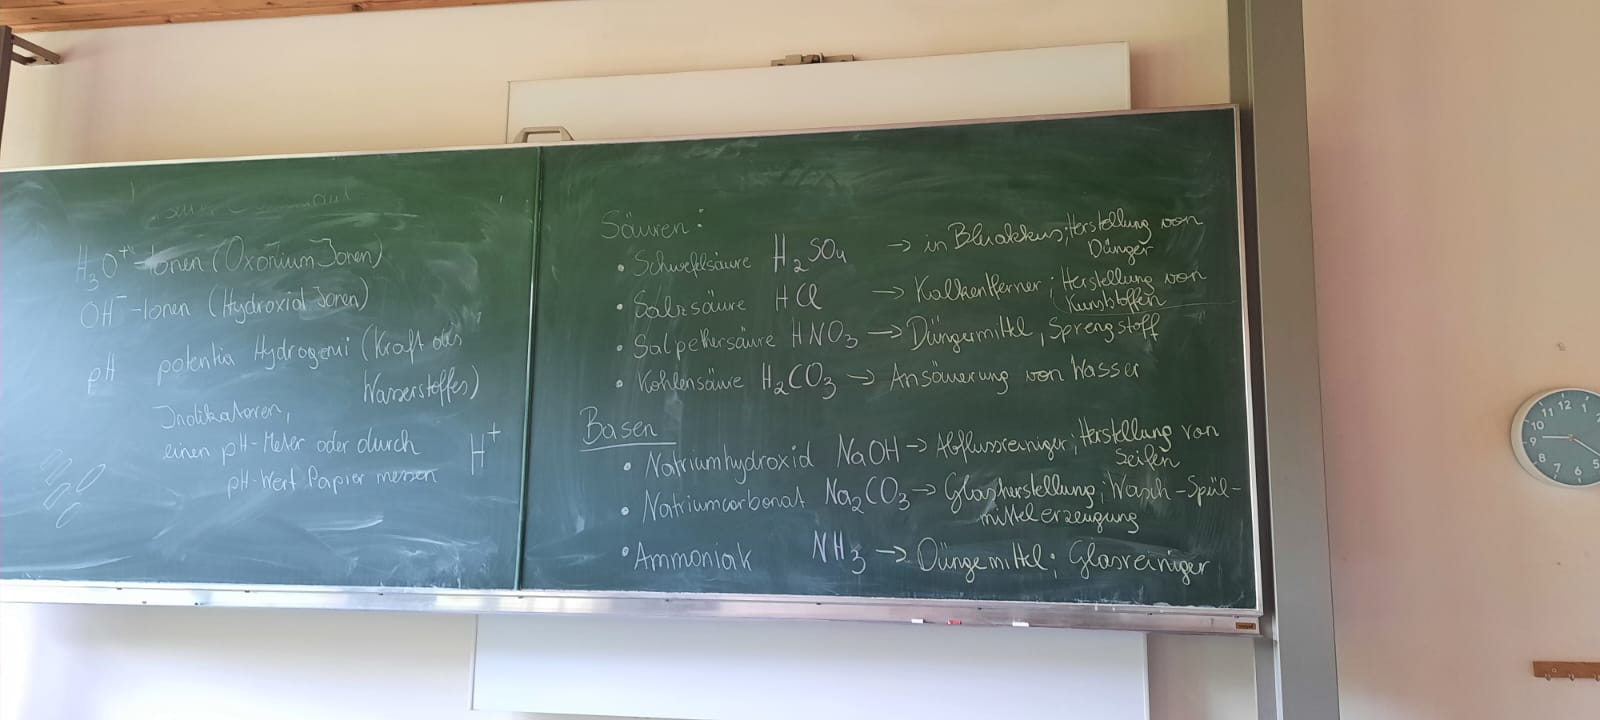 H₃O⁺-Ionen (Oxonium Ionen)
OH⁻-Ionen (Hydroxid Ionen)
pH potentia Hydrogeni (Kraft des
Wasserstoffes)
Indikatoren,
einen pH-Meter oder durch H⁺
pH-Wert Papier messen
Säuren:
• Schwefelsäure H₂SO₄ → in Bleiakkus; Herstellung von
Dünger
• Salzsäure HCl → Kalkentferner; Herstellung von
Kunststoffen
• Salpetersäure HNO₃ → Düngermittel, Sprengstoff
• Kohlensäure H₂CO₃ → Ansäuerung von Wasser
Basen
• Natriumhydroxid NaOH → Abflussreiniger; Herstellung von
Seifen
• Natriumcarbonat Na₂CO₃ → Glasherstellung; Wasch-Spül-
mittelerzeugung
• Ammoniak NH₃ → Düngemittel; Glasreiniger
11 12 1
10
9
8 7 6 5